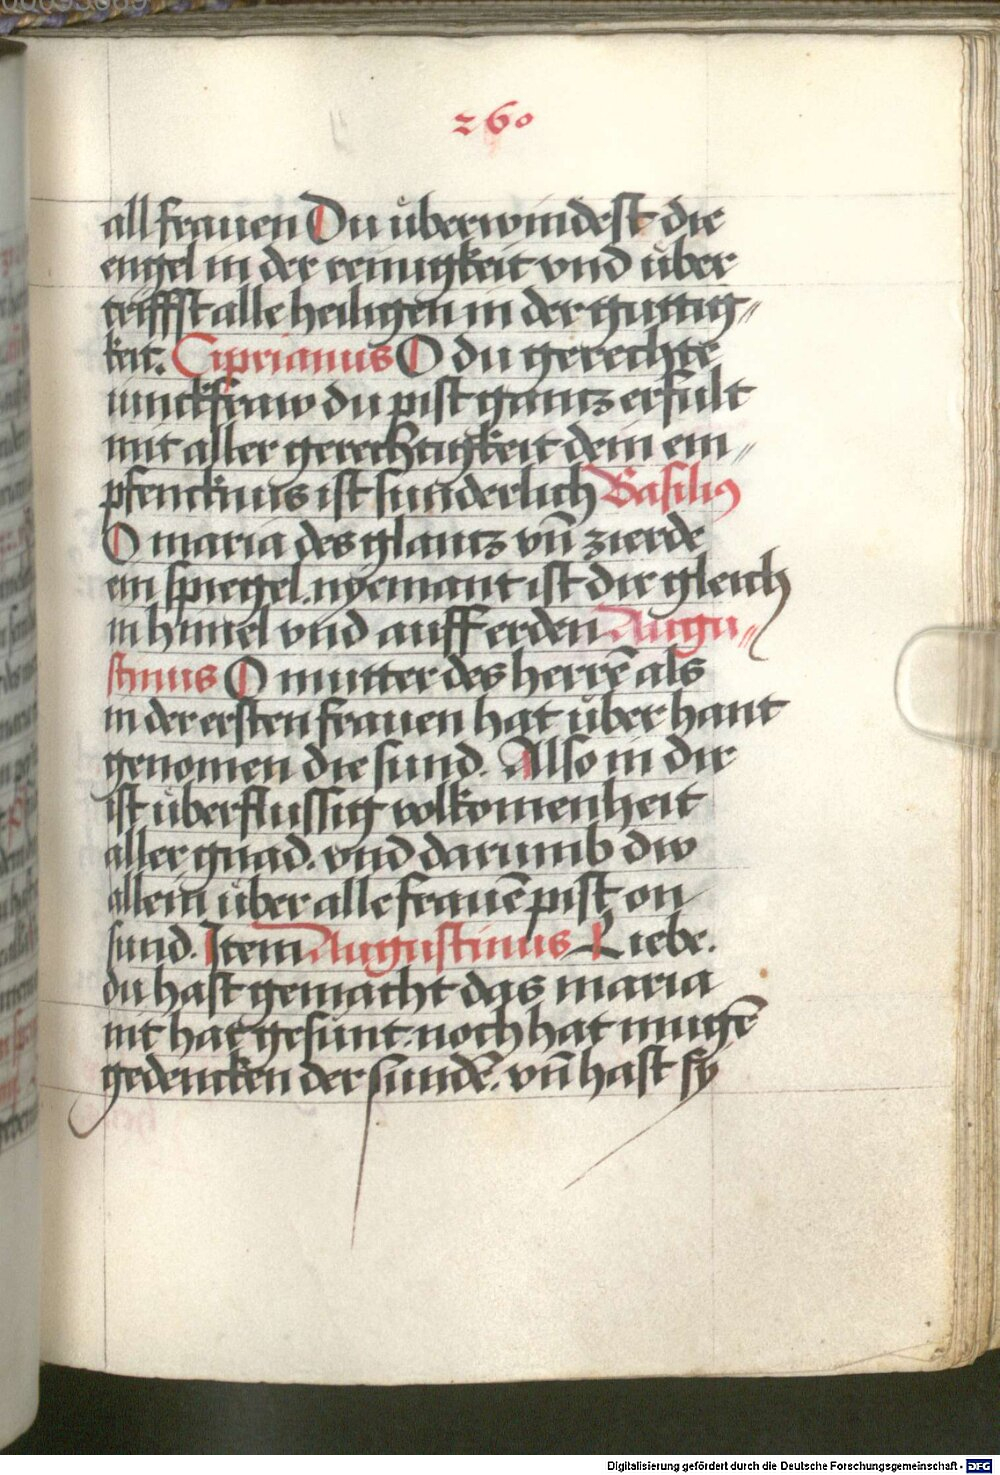 260
all frauen Du überwindest die
engel in der reinigkeit vnd über
triffst alle heiligen in der guttig〃
keit. Ciprianus O du gerechte
iunckfraw du pist gantz erfült
mit aller gerechtigkeit dein em〃
pfencknus ist sunderlich Basiliꝰ
O maria des glantz vn̄ zierde
ein spiegel. nyemant ist dir gleich
in himel vnd auff erden Augu〃
stinus O mutter des herrē als
in der ersten frauen hat überhant
genomen die sund. Also in dir
ist überflussig volkomenheit
aller gnad. vnd darumb dw
allein über alle frauē pist on
sund. Item Augustinus Liebe.
du hast gemacht das maria
nit hat gesünt. noch hat mugē
gedencken der sundē. vn̄ hast sy
Digitalisierung gefördert durch die Deutsche Forschungsgemeinschaft - DFG